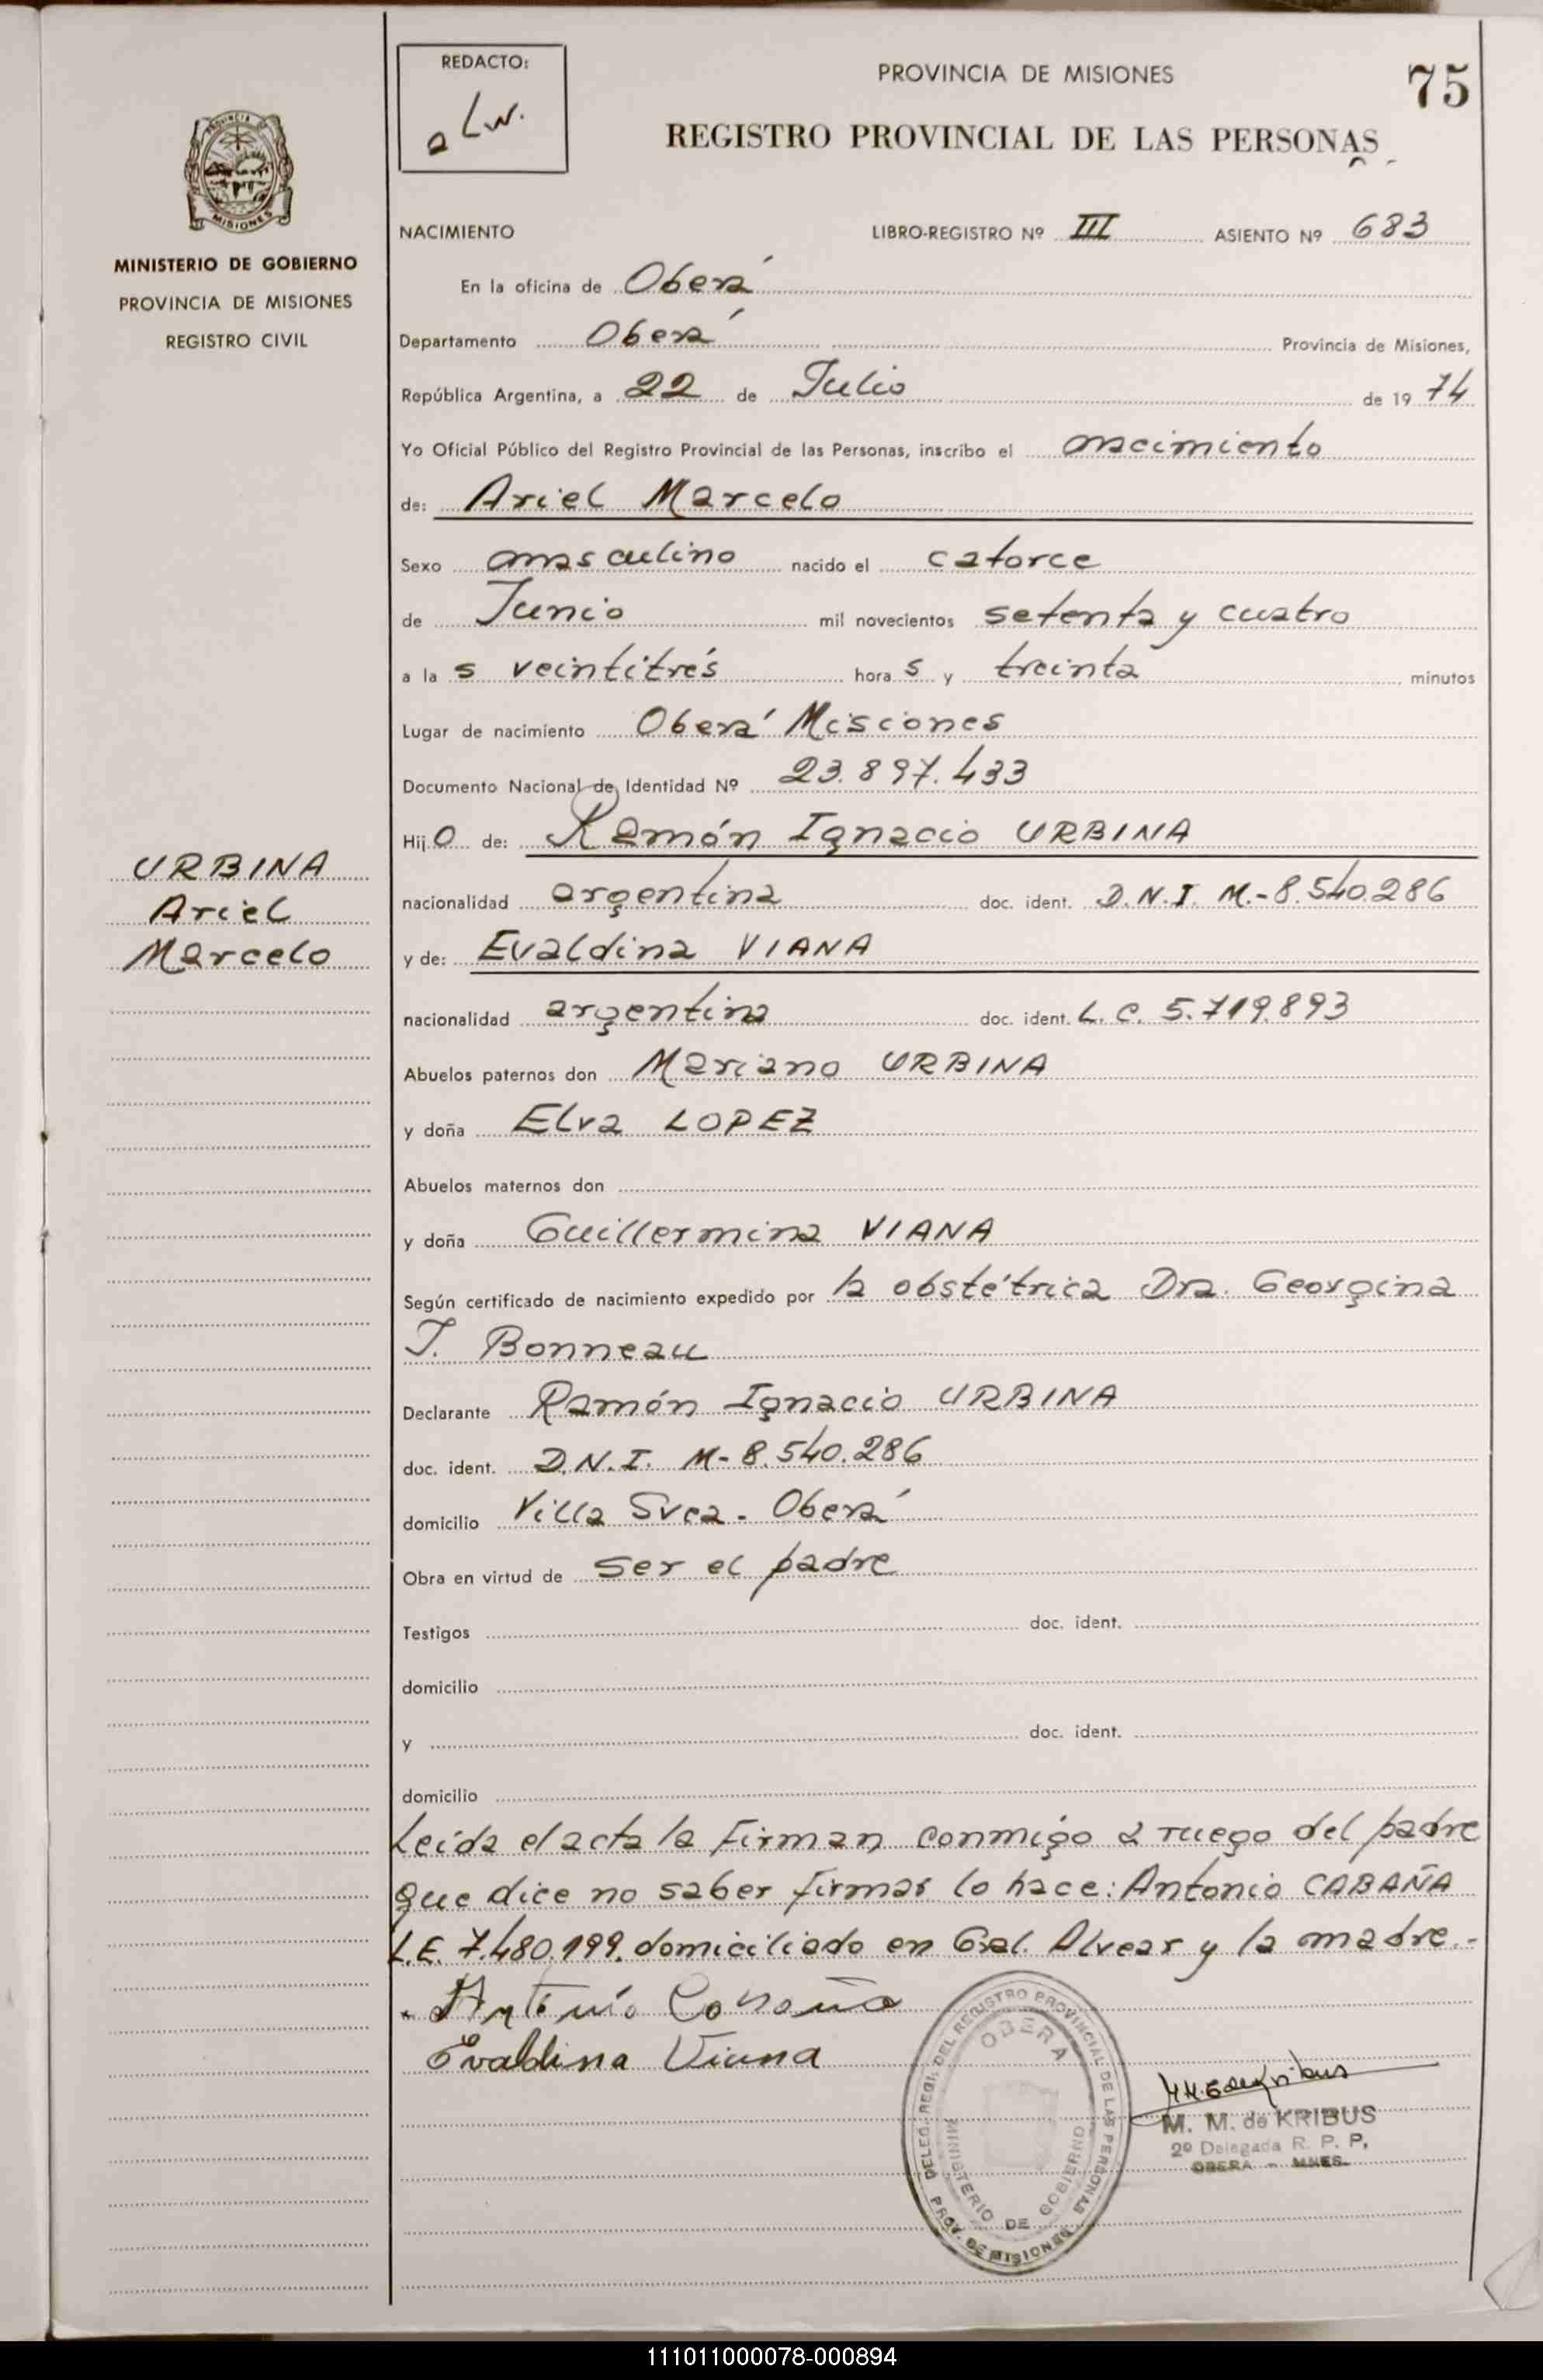 REDACTO:
PROVINCIA DE MISIONES
75
REGISTRO PROVINCIAL DE LAS PERSONAS
PROVINCIA DE
MISIONES
MINISTERIO DE GOBIERNO
PROVINCIA DE MISIONES
REGISTRO CIVIL
NACIMIENTO LIBRO-REGISTRO Nº III ASIENTO Nº 683
En la oficina de Oberá
Departamento Oberá Provincia de Misiones,
República Argentina, a 22 de Julio de 1974
Yo Oficial Público del Registro Provincial de las Personas, inscribo el nacimiento
de: Ariel Marcelo
Sexo masculino nacido el catorce
de Junio mil novecientos setenta y cuatro
a las veintitrés horas y treinta minutos
Lugar de nacimiento Oberá Misiones
Documento Nacional de Identidad Nº 23.897.433
Hijo de: Ramón Ignacio URBINA
URBINA
Ariel
Marcelo
nacionalidad argentina doc. ident. D.N.I. M.-8.540.286
y de: Evaldina VIANA
nacionalidad argentina doc. ident. L.C. 5.719.893
Abuelos paternos don Mariano URBINA
y doña Elva LOPEZ
Abuelos maternos don
y doña Guillermina VIANA
Según certificado de nacimiento expedido por la obstétrica Dra. Georgina
J. Bonneau
Declarante Ramón Ignacio URBINA
doc. ident. D.N.I. M-8.540.286
domicilio Villa Svea - Oberá
Obra en virtud de ser el padre
Testigos doc. ident.
domicilio
y doc. ident.
domicilio
Leída el acta la firman conmigo a ruego del padre
que dice no saber firmar lo hace: Antonio CABAÑA
L.E. 7.480.199. domiciliado en Gral. Alvear y la madre.-
Antonio Cabaña
Evaldina Viana
DELEG. REGI. DEL REGISTRO PROVINCIAL DE LAS PERSONAS
OBERA
MINISTERIO DE GOBIERNO
PROV. DE MISIONES
M. M. de KRIBUS
2º Delegada R. P. P.
OBERA - MNES.
111011000078-000894